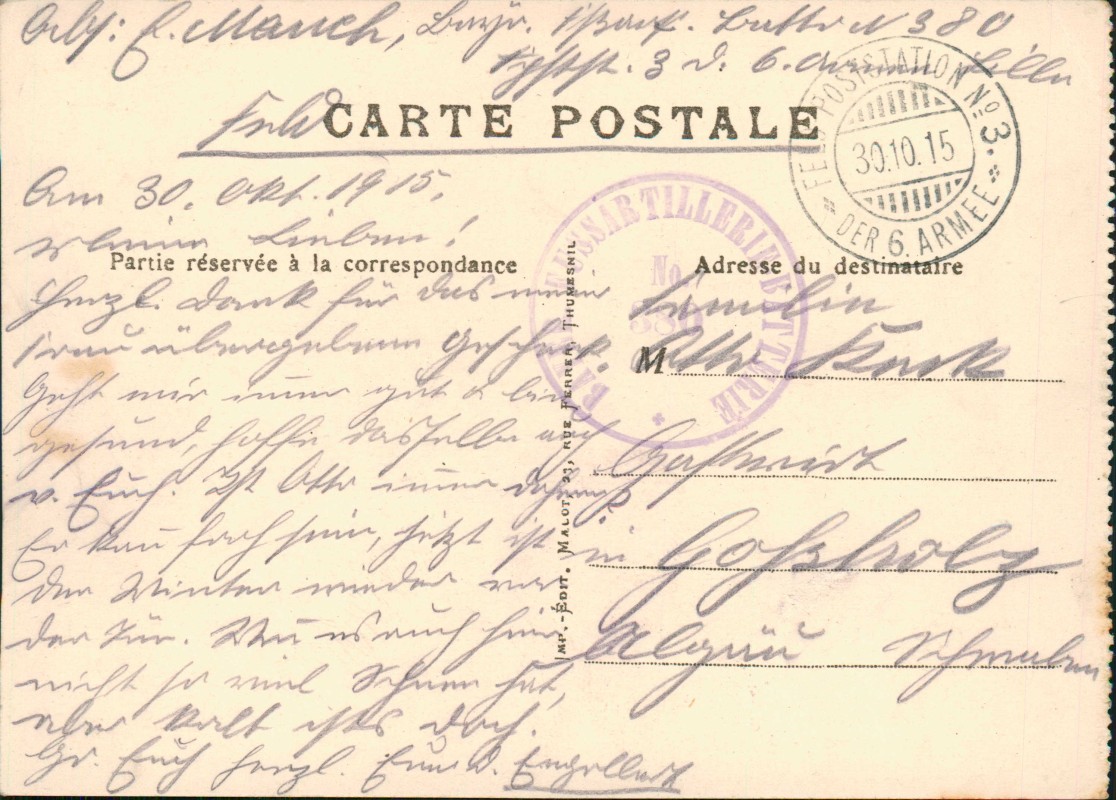 Abs: E. Mauch, Bayr. Fßart. Battr N 380
Lpstst. 3 d. 6. Armee Lille
Feld CARTE POSTALE
FELDPOSTSTATION No. 3.
30.10.15
DER 6. ARMEE
Am 30. Okt. 1915.
Meine Lieben!
Partie réservée à la correspondance
Herzl. Dank für das meiner
Frau übergebene Geschenk.
Geht mir immer gut & bin
gesund, hoffe dasselbe auch
v. Euch. Ist Otto immer
Er kann froh sein, jetzt ist
der Winter wieder vor
der Tür. Wenn es auch hier
nicht so viel Schnee hat,
aber kalt ists doch.
Gr. Euch herzl. Euer
BAYR. FUSSARTILLERIE BATTERIE
No.
380
IMP.-ÉDIT. MALOT, 23, RUE FERRER, THUMESNIL
Adresse du destinataire
Familie
M Otto
Gastwirt
in Goßholz
Algäu Schwaben